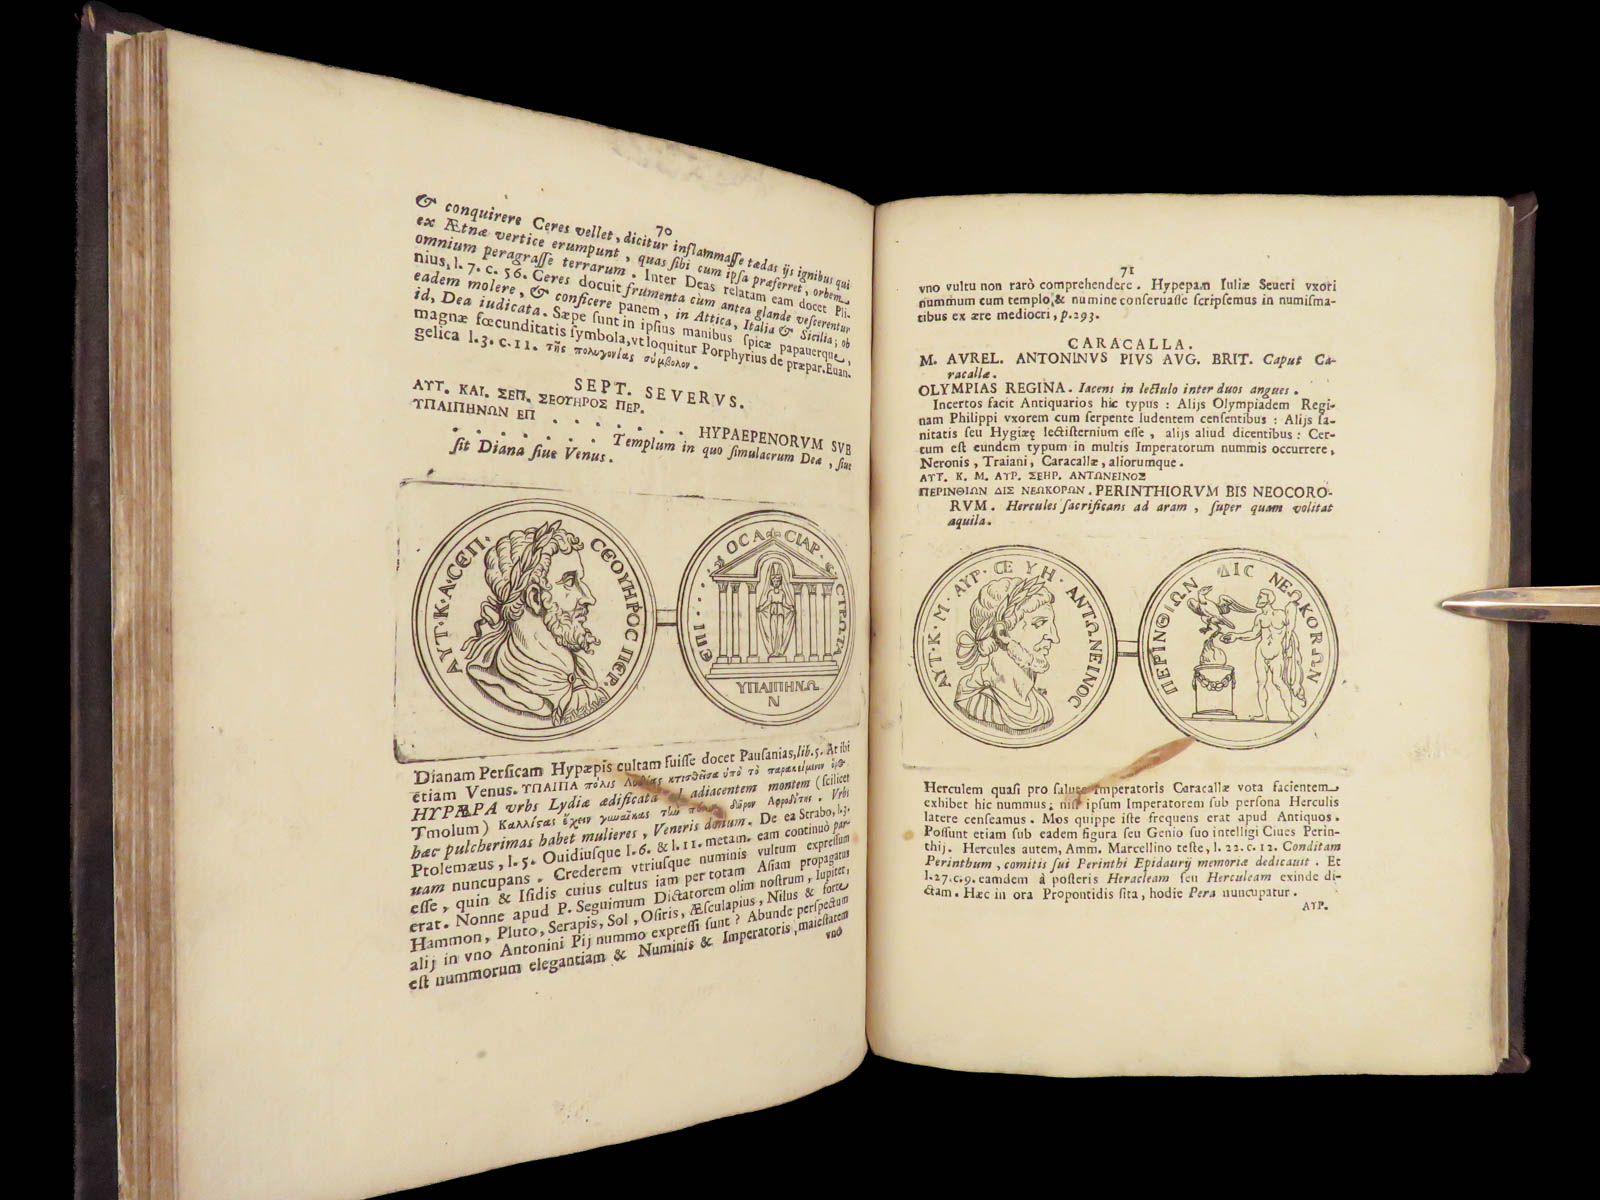 70
& conquirere Ceres vellet, dicitur inflammasse tædas ijs ignibus qui
ex Ætnæ vertice erumpunt, quas sibi cum ipsa præferret, orbem
omnium peragrasse terrarum. Inter Deas relatam eam docet Pli-
nius, l. 7. c. 56. Ceres docuit frumenta cum antea glande vescerentur
eadem molere, & conficere panem, in Attica, Italia & Sicilia; ob
id, Dea iudicata. Sæpe sunt in ipsius manibus spicæ papauerque,
magnæ fœcunditatis symbola, vt loquitur Porphyrius de præpar. Euan-
gelica l. 3. c. 11. τῆς πολυγονίας σύμβολον.
SEPT. SEVERVS.
ΑΥΤ. ΚΑΙ. ΣΕΠ. ΣΕΟΥΗΡΟΣ ΠΕΡ.
ΥΠΑΙΠΗΝΩΝ ΕΠ . . . . . . . HYPAEPENORVM SVB
. . . . . . . Templum in quo simulacrum Deæ, siue
sit Diana siue Venus.
ΑΥΤ·Κ·Λ·CΕΠ· CΕΟΥΗΡΟC ΠΕΡ.
ΕΠΙ.... OCA CIAP. CTPΩTA
ΥΠΑΙΠΗΝΩ
Ν
Dianam Persicam Hypæpis cultam fuisse docet Pausanias, lib. 5. At ibi
etiam Venus. ΥΠΑΙΠΑ πόλις Λυδίας κτισθεῖσα ὑπὸ τὸ παρακείμενον ὄρος.
HYPÆPA vrbs Lydiæ ædificata ad adiacentem montem (scilicet
Tmolum) Καλλίςας ἔχειν γυναῖκας τὴν πόλιν δῶρον Αφροδίτης. Vrbs
hæc pulcherimas habet mulieres, Veneris donum. De ea Strabo, l. 3.
Ptolemæus, l. 5. Ouidiusque l. 6. & l. 11. metam. eam continuò par-
uam nuncupans. Crederem vtriusque numinis vultum expressum
esse, quin & Isidis cuius cultus iam per totam Asiam propagatus
erat. Nonne apud P. Seguimum Dictatorem olim nostrum, Iupiter,
Hammon, Pluto, Serapis, Sol, Osiris, Æsculapius, Nilus & forte
alij in vno Antonini Pij nummo expressi sunt? Abunde perspectum
est nummorum elegantiam & Numinis & Imperatoris, maiestatem
vno
71
vno vultu non rarò comprehendere. Hypepam Iuliæ Seueri vxori
nummum cum templo, & numine conseruasse scripsemus in numisma-
tibus ex ære mediocri, p. 293.
CARACALLA.
M. AVREL. ANTONINVS PIVS AVG. BRIT. Caput Ca-
racallæ.
OLYMPIAS REGINA. Iacens in lectulo inter duos angues.
Incertos facit Antiquarios hic typus: Alijs Olympiadem Regi-
nam Philippi vxorem cum serpente ludentem censentibus: Alijs sa-
nitatis seu Hygiæ lectisternium esse, alijs aliud dicentibus: Cer-
tum est eundem typum in multis Imperatorum nummis occurrere,
Neronis, Traiani, Caracallæ, aliorumque.
ΑΥΤ. Κ. Μ. ΑΥΡ. ΣΕΗΡ. ΑΝΤΩΝΕΙΝΟΣ
ΠΕΡΙΝΘΙΩΝ ΔΙΣ ΝΕΩΚΟΡΩΝ. PERINTHIORVM BIS NEOCORO-
RVM. Hercules sacrificans ad aram, super quam volitat
aquila.
ΑΥΤ·Κ·Μ·ΑΥΡ·CΕ ΥΗ·ΑΝΤΩΝΕΙΝΟC
ΠΕΡΙΝΘΙΩΝ ΔΙC ΝΕΩΚΟΡΩΝ
Herculem quasi pro salute Imperatoris Caracallæ vota facientem
exhibet hic nummus; nisi ipsum Imperatorem sub persona Herculis
latere censeamus. Mos quippe iste frequens erat apud Antiquos.
Possunt etiam sub eadem figura seu Genio suo intelligi Ciues Perin-
thij. Hercules autem, Amm. Marcellino teste, l. 22. c. 12. Conditam
Perinthum, comitis sui Perinthi Epidaurij memoriæ dedicauit. Et
l. 27. c. 9. eamdem à posteris Heracleam seu Herculeam exinde di-
ctam. Hæc in ora Propontidis sita, hodie Pera nuncupatur.
ΑΥΡ.